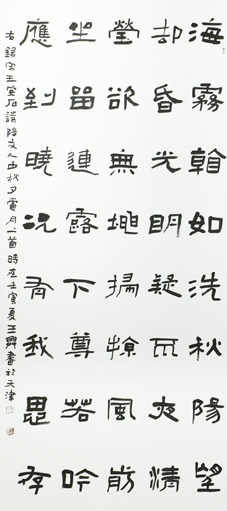 海霧看如洗秋陽望
却昏光明疑不夜清
瑩欲無坤掃掠風前
坐留連露下尊苦吟
應到曉況有我思存
右錄宋王安石詩陪友人中秋夕賞月一首時在壬寅夏王書於天津